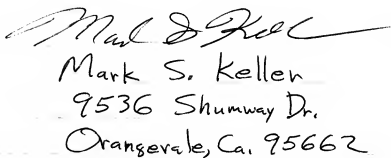 Mark S. Keller
Mark S. Keller
9536 Shumway Dr.
Orangevale, Ca. 95662